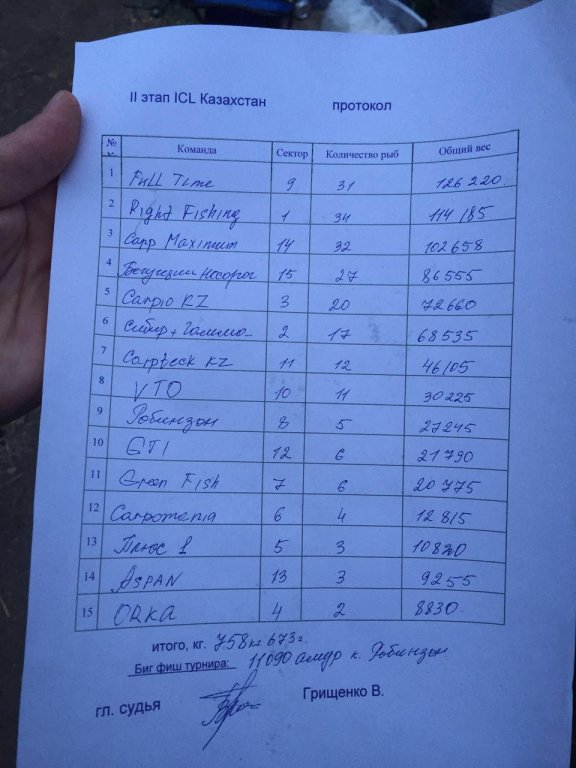 II этап ICL Казахстан протокол
№ Команда Сектор Количество рыб Общий вес
1 Full Time 9 31 126 220
2 Right Fishing 1 34 114 185
3 Carp Maximum 14 32 102658
4 Бегущий Носорог 15 27 86555
5 Carpio KZ 3 20 72660
6 Сибир + Гамма 2 17 68535
7 Carpteck KZ 11 12 46105
8 VTO 10 11 30225
9 Робинзон 8 5 27245
10 GTI 12 6 21790
11 Green Fish 7 6 20775
12 Carpomania 6 4 12815
13 Плюс 1 5 3 10820
14 ASPAN 13 3 9255
15 ORKA 4 2 8830
итого, кг. 758кг 673г.
Биг фиш турнира: 11090 амур к. Робинзон
гл. судья Грищенко В.